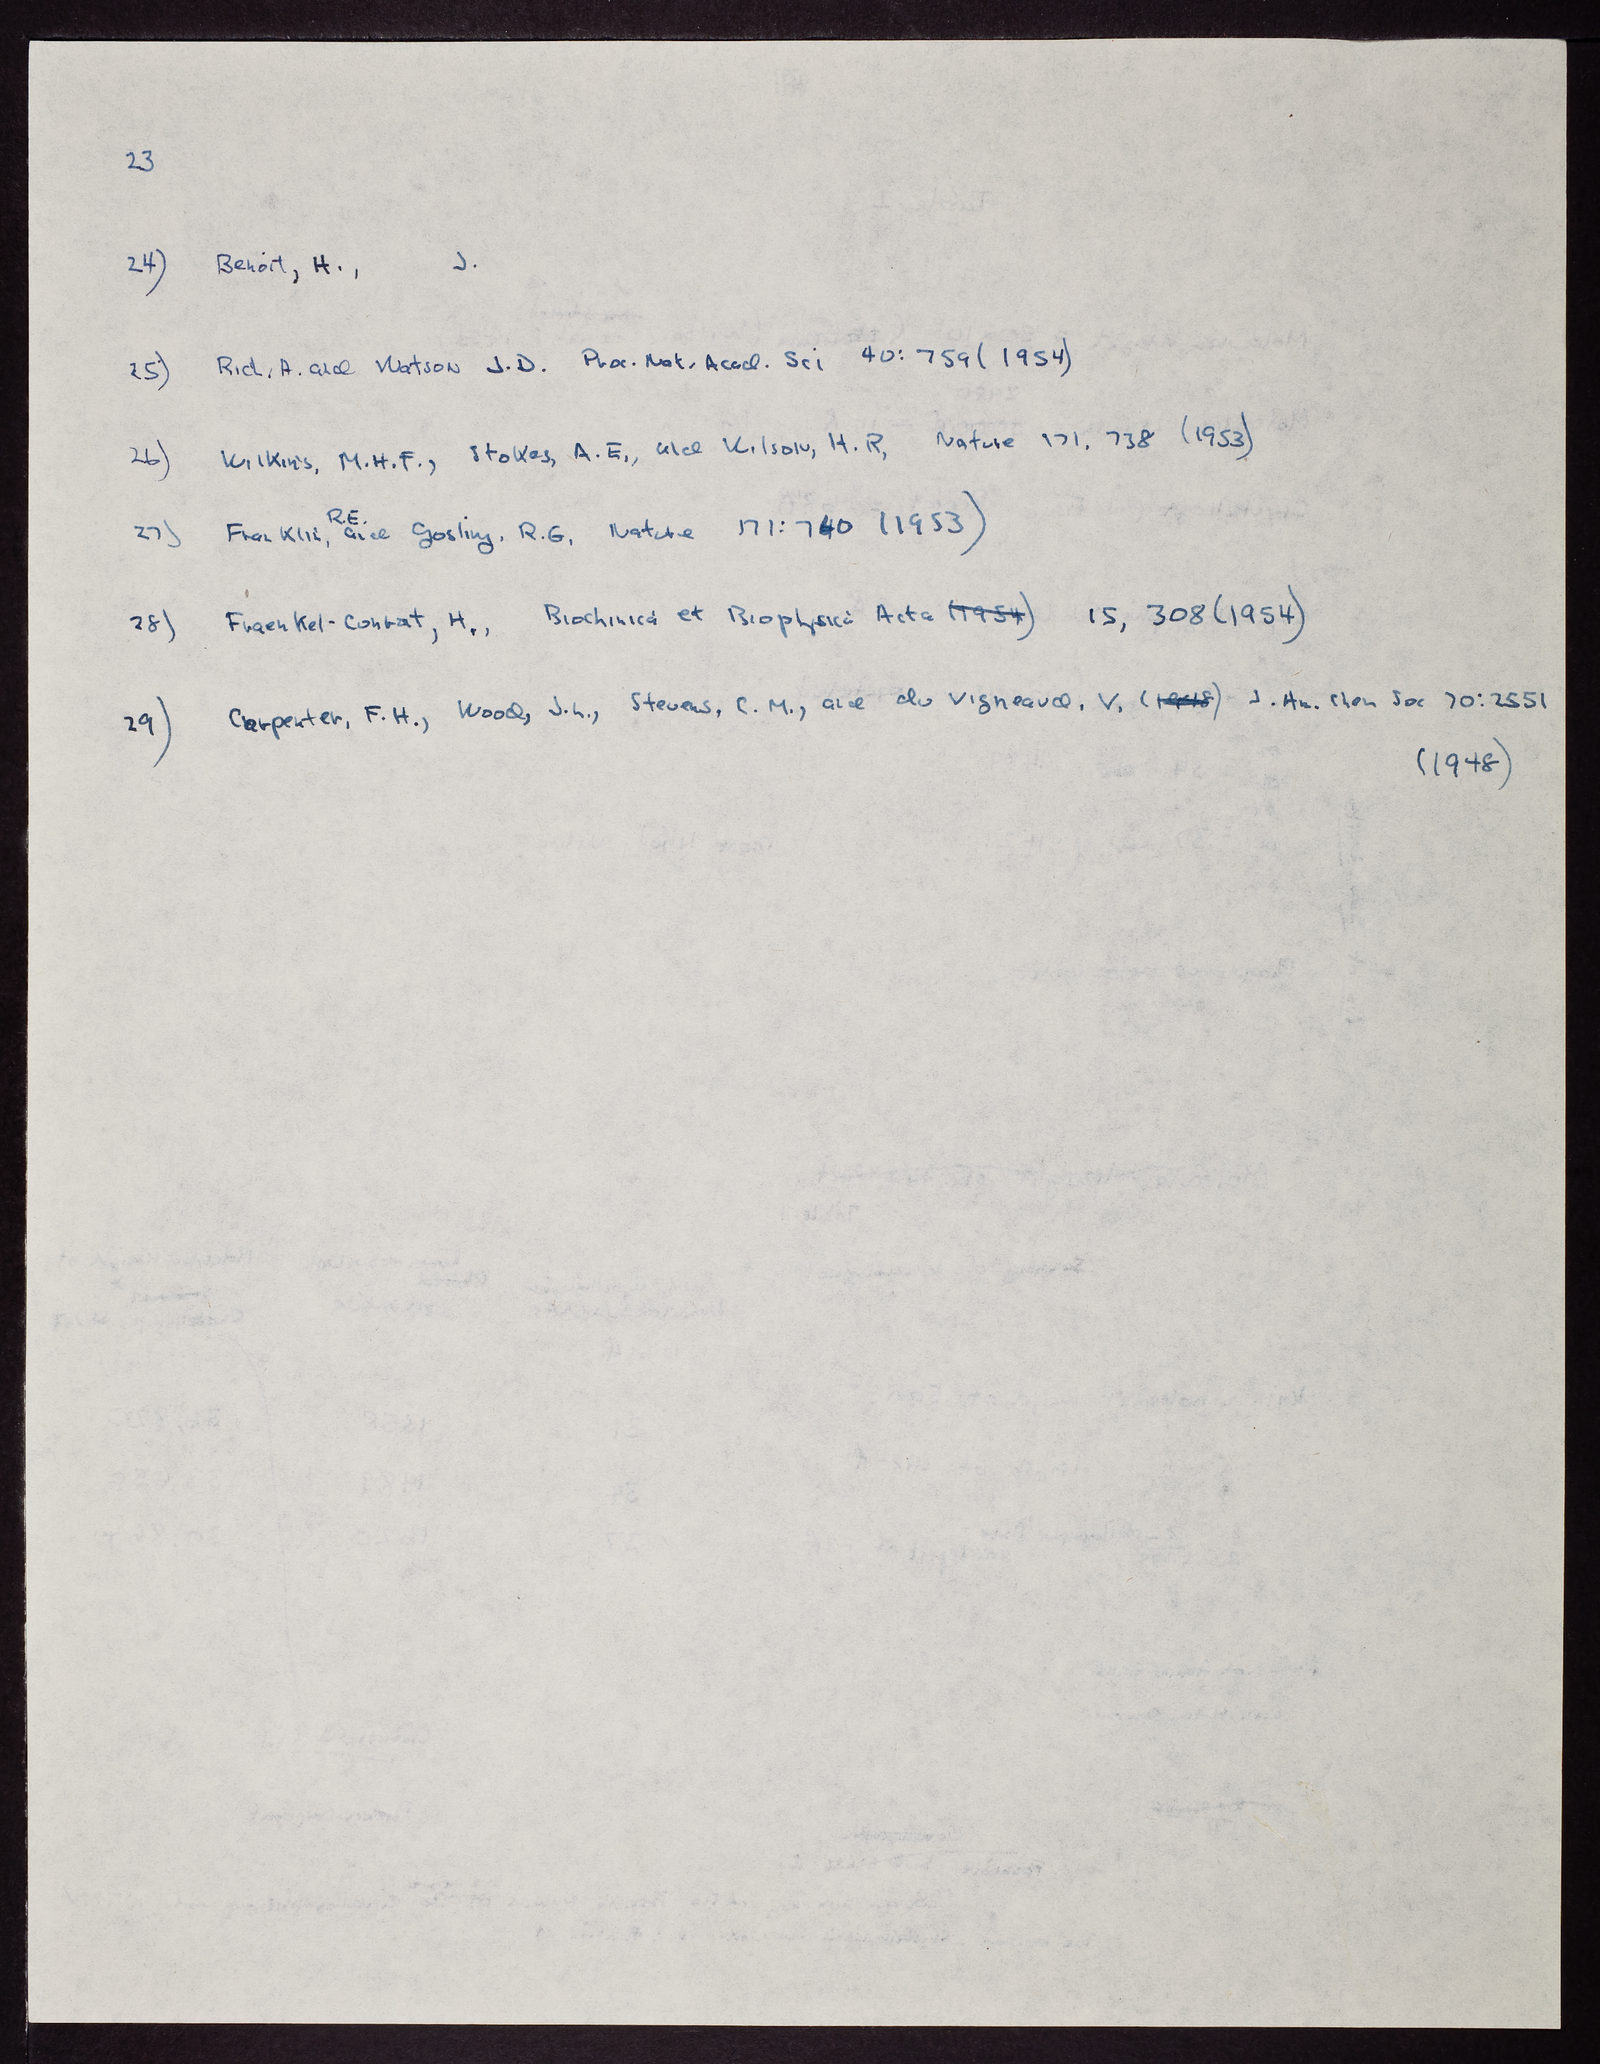 23
24) Benoit, H., J.
25) Rich, A. and Watson J.D. Proc. Nat. Acad. Sci 40: 759 (1954)
26) Wilkins, M.H.F., Stokes, A.E., and Wilson, H.R, Nature 171, 738 (1953)
27) Franklin, R.E. and Gosling, R.G, Nature 171: 740 (1953)
28) Fraenkel-Conrat, H., Biochimica et Biophysica Acta (1954) 15, 308 (1954)
29) Carpenter, F.H., Wood, J.L., Stevens, C.M., and du Vigneaud, V, (1948) J. Am. Chem Soc 70: 2551
(1948)